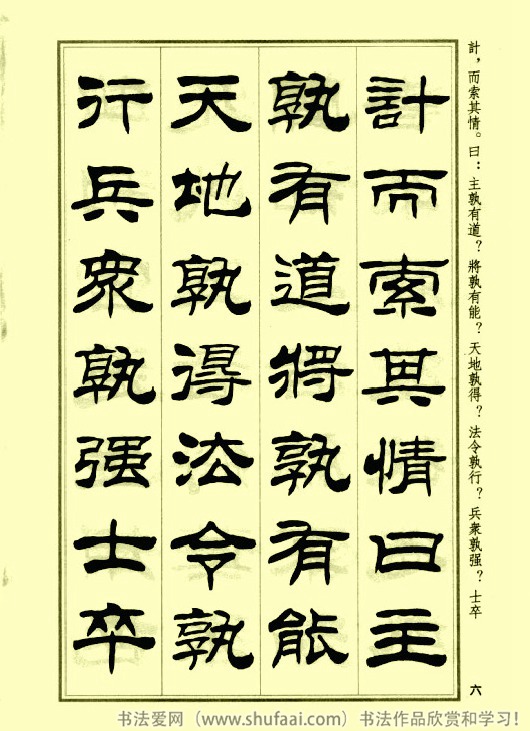 計，而索其情。曰：主孰有道？將孰有能？天地孰得？法令孰行？兵衆孰强？士卒
計而索其情曰主
孰有道將孰有能
天地孰得法令孰
行兵衆孰强士卒
六
书法爱网（www.shufaai.com）书法作品欣赏和学习！